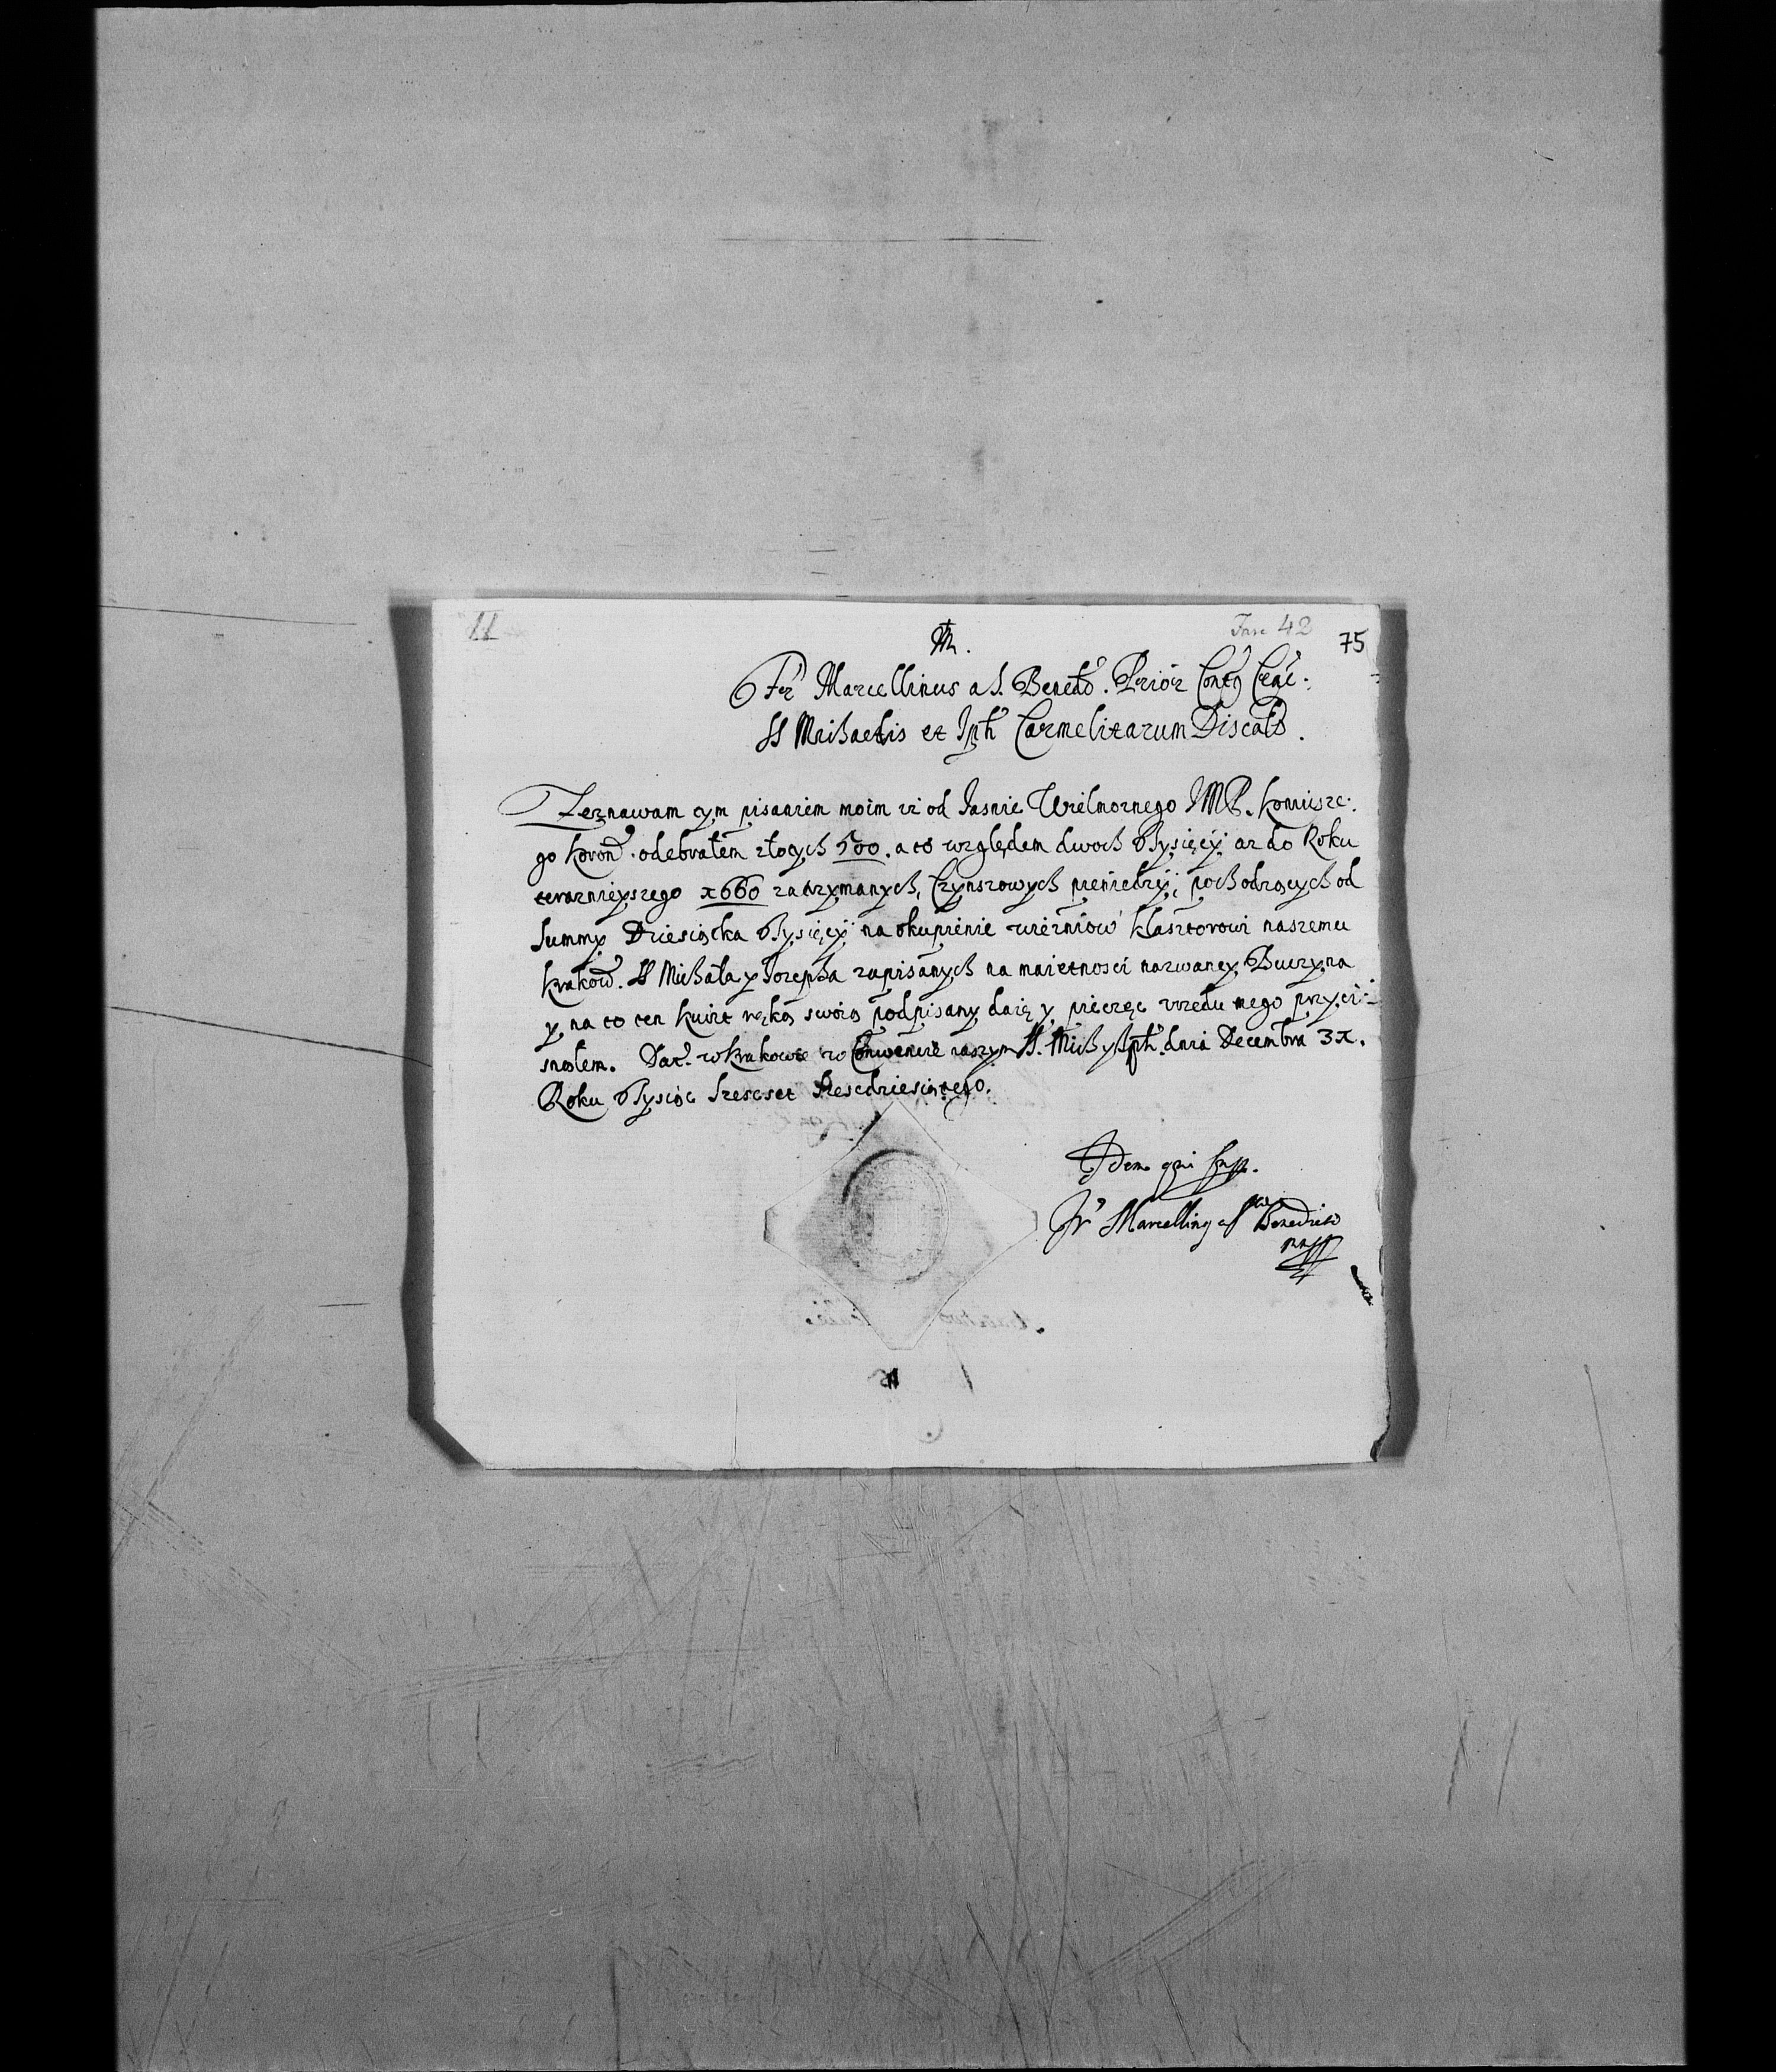 11
Fasc 42
75
Fr Marcellinus a S. Bened̃o. Prior Contg Crac.
SS Michaelis et Jph̃ Carmelitarum Discalc̃.
Zeznawam tym pisaniem moim iz od Jasnie Wielmoznego JMP. Koniusze:
go Koron̄. odebrałem złotych 500. a to względem dwoch Tysięcy az do Roku
terazneyszego 1660 zatrzymanych, Czynszowych pieniedzy, pochodzących od
Summy Dziesiątka Tysięcy na okupienie więzniow Klasztorowi naszemu
Krakow̄. SS Michała y Jozepha zapisanych na maietnosci nazwaney, Buczyna
y na to ten kwit ręką swoią podpisany daię y pieczęc vrzedu mego przyci:
snąłem. Dat. w Krakowie w Conwencie naszym SS. Mich y Jph̃. dnia Decembra 31.
Roku Tysiąc Szescset Szescdziesiątego.
Idem qui supra.
Fr Marcelling a S Benedicto
mpp